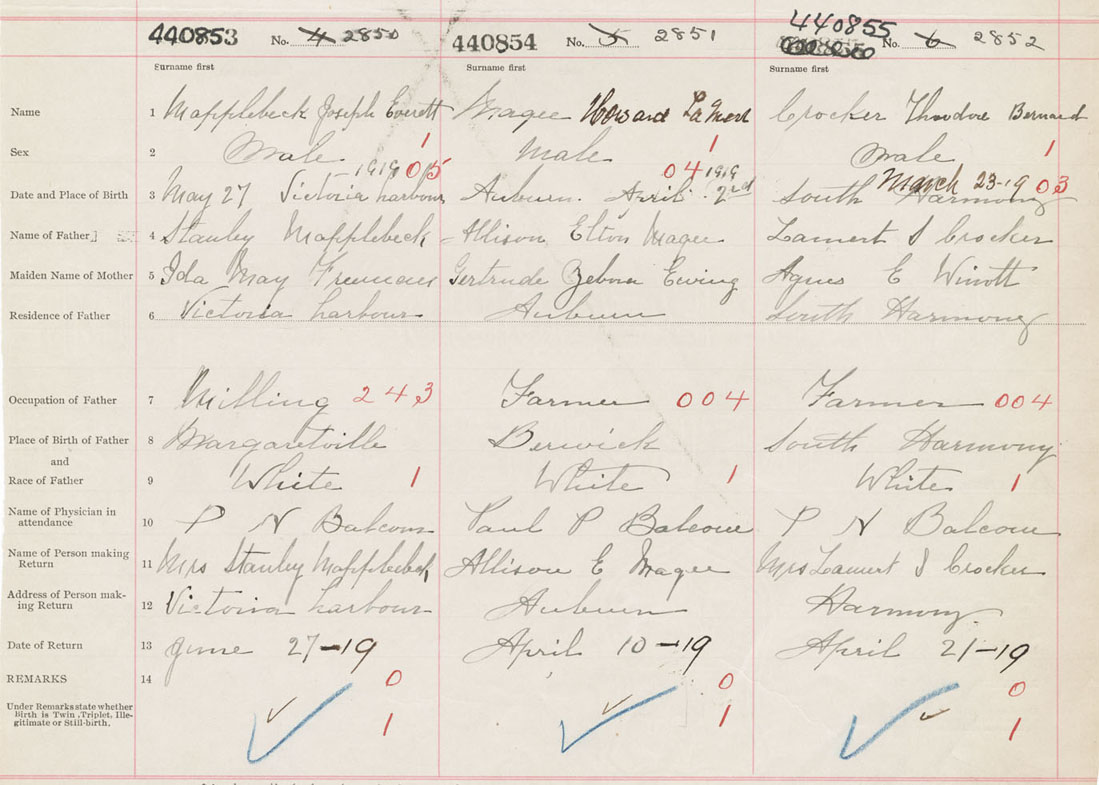 440853 No. 4 2850 440854 No. 5 2851 440855 No. 6 2852
Surname first Surname first Surname first
Name 1 Mapplebeck Joseph Everett Magee Howard LaMert Crocker Theodore Bernard
Sex 2 Male 1 Male 1 Male 1
1919 05 04 1919 March 23-19 03
Date and Place of Birth 3 May 27 Victoria harbour Auburn. April 2nd South Harmony
Name of Father 4 Stanley Mapplebeck Allison Elton Magee Lamert S Crocker
Maiden Name of Mother 5 Ida May Freeman Gertrude Ewing Agnes E
Residence of Father 6 Victoria harbour Auburn South Harmony
Occupation of Father 7 Milling 243 Farmer 004 Farmer 004
Place of Birth of Father 8 Margaretville Berwick South Harmony
and
Race of Father 9 White 1 White 1 White 1
Name of Physician in
attendance 10 P N Balcom Paul P Balcom P N Balcom
Name of Person making
Return 11 Mrs Stanley Mapplebeck Allison E Magee Mrs Lamert S Crocker
Address of Person mak-
ing Return 12 Victoria harbour Auburn Harmony
Date of Return 13 June 27-19 April 10-19 April 21-19
REMARKS 14 0 0 0
Under Remarks state whether
Birth is Twin, Triplet, Ille-
gitimate or Still-birth. 1 1 1